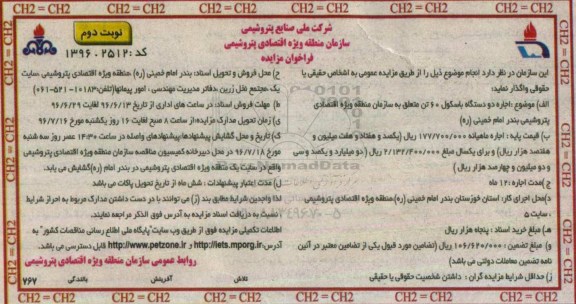 CH2 = CH2 CH2 = CH2 CH2 = CH2 CH2 = CH2 CH2 = CH2 CH2 = CH2
شرکت ملی صنایع پتروشیمی
سازمان منطقه ویژه اقتصادی پتروشیمی
فراخوان مزایده
نوبت دوم
کد: ۱۳۹۶.۲۵۱۲
این سازمان در نظر دارد انجام موضوع ذیل را از طریق مزایده عمومی به اشخاص حقیقی یا
حقوقی واگذار نماید:
الف) موضوع: اجاره دو دستگاه باسکول ۶۰ تن متعلق به سازمان منطقه ویژه اقتصادی
پتروشیمی بندر امام خمینی (ره)
ب) قیمت پایه: اجاره ماهیانه ۱۷۷/۷۰۰/۰۰۰ ریال (یکصد و هفتاد و هفت میلیون و
هفتصد هزار ریال) و برای یکسال مبلغ ۲/۱۳۲/۴۰۰/۰۰۰ ریال (دو میلیارد و یکصد و سی
و دو میلیون و چهارصد هزار ریال)
ج) مدت اجاره: ۱۲ ماه
د) محل اجرای کار: استان خوزستان بندر امام خمینی (ره) منطقه ویژه اقتصادی پتروشیمی
، سایت ۵
ه) مبلغ خرید اسناد: پنجاه هزار ریال
و) مبلغ تضمین: ۱۰۶/۶۲۰/۰۰۰ ریال (تضامین مورد قبول یکی از تضامین معتبر در آئین
نامه تضمین معاملات دولتی می باشد)
ز) حداقل شرایط مزایده گران: داشتن شخصیت حقوقی یا حقیقی
ح) محل فروش و تحویل اسناد: بندر امام خمینی (ره)، منطقه ویژه اقتصادی پتروشیمی، سایت
یک، مجتمع غلل زرین، دفتر مدیریت مهندسی، امور پیمانها (تلفن: ۱۰۱۸۳-۰۶۱-۵۲)
ط) مهلت فروش اسناد: در ساعت های اداری از تاریخ ۹۶/۶/۱۳ لغایت ۹۶/۶/۲۹
ی) زمان تحویل مدارک مزایده: از ساعت ۸ صبح لغایت ۱۶ روز یکشنبه مورخ ۹۶/۷/۱۶
ک) تاریخ و محل گشایش پیشنهادها: پیشنهادهای واصله در ساعت ۱۴:۳۰ عصر روز سه شنبه
مورخ ۹۶/۷/۱۸ در محل دبیرخانه کمیسیون مناقصه سازمان منطقه ویژه اقتصادی پتروشیمی
واقع در سایت یک منطقه ویژه اقتصادی پتروشیمی در بندر امام (ره) گشایش می یابد.
ل) مدت اعتبار پیشنهادات: شش ماه از تاریخ تحویل پاکات می باشد
لذا واجدین شرایط مطابق بند (ز) می توانند با در دست داشتن مدارک مربوط به احراز شرایط
، نسبت به دریافت اسناد مزایده به آدرس فوق الذکر مراجعه نمایند.
اطلاعات تکمیلی مزایده فوق از طریق وب سایت "پایگاه ملی اطلاع رسانی مناقصات کشور" به
آدرس: http://iets.mporg.ir و http://www.petzone.ir قابل دسترسی می باشد.
روابط عمومی سازمان منطقه ویژه اقتصادی پتروشیمی
تلاش آفرینش بالندگی ۷۶۷
CH2 = CH2 CH2 = CH2 CH2 = CH2 CH2 = CH2 CH2 = CH2 CH2 = CH2